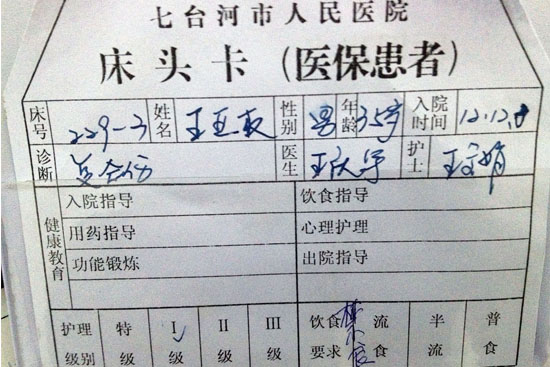 七台河市人民医院
床头卡（医保患者）
床号 229-3 姓名 王亚 性别 男 年龄 35岁 入院时间 12.12.8
诊断 复合伤 医生 王欣宇 护士 王 娟
健康教育
入院指导 饮食指导
用药指导 心理护理
功能锻炼 出院指导
护理级别 特级 Ⅰ级 Ⅱ级 Ⅲ级 饮食要求 禁食 流食 半流 普食